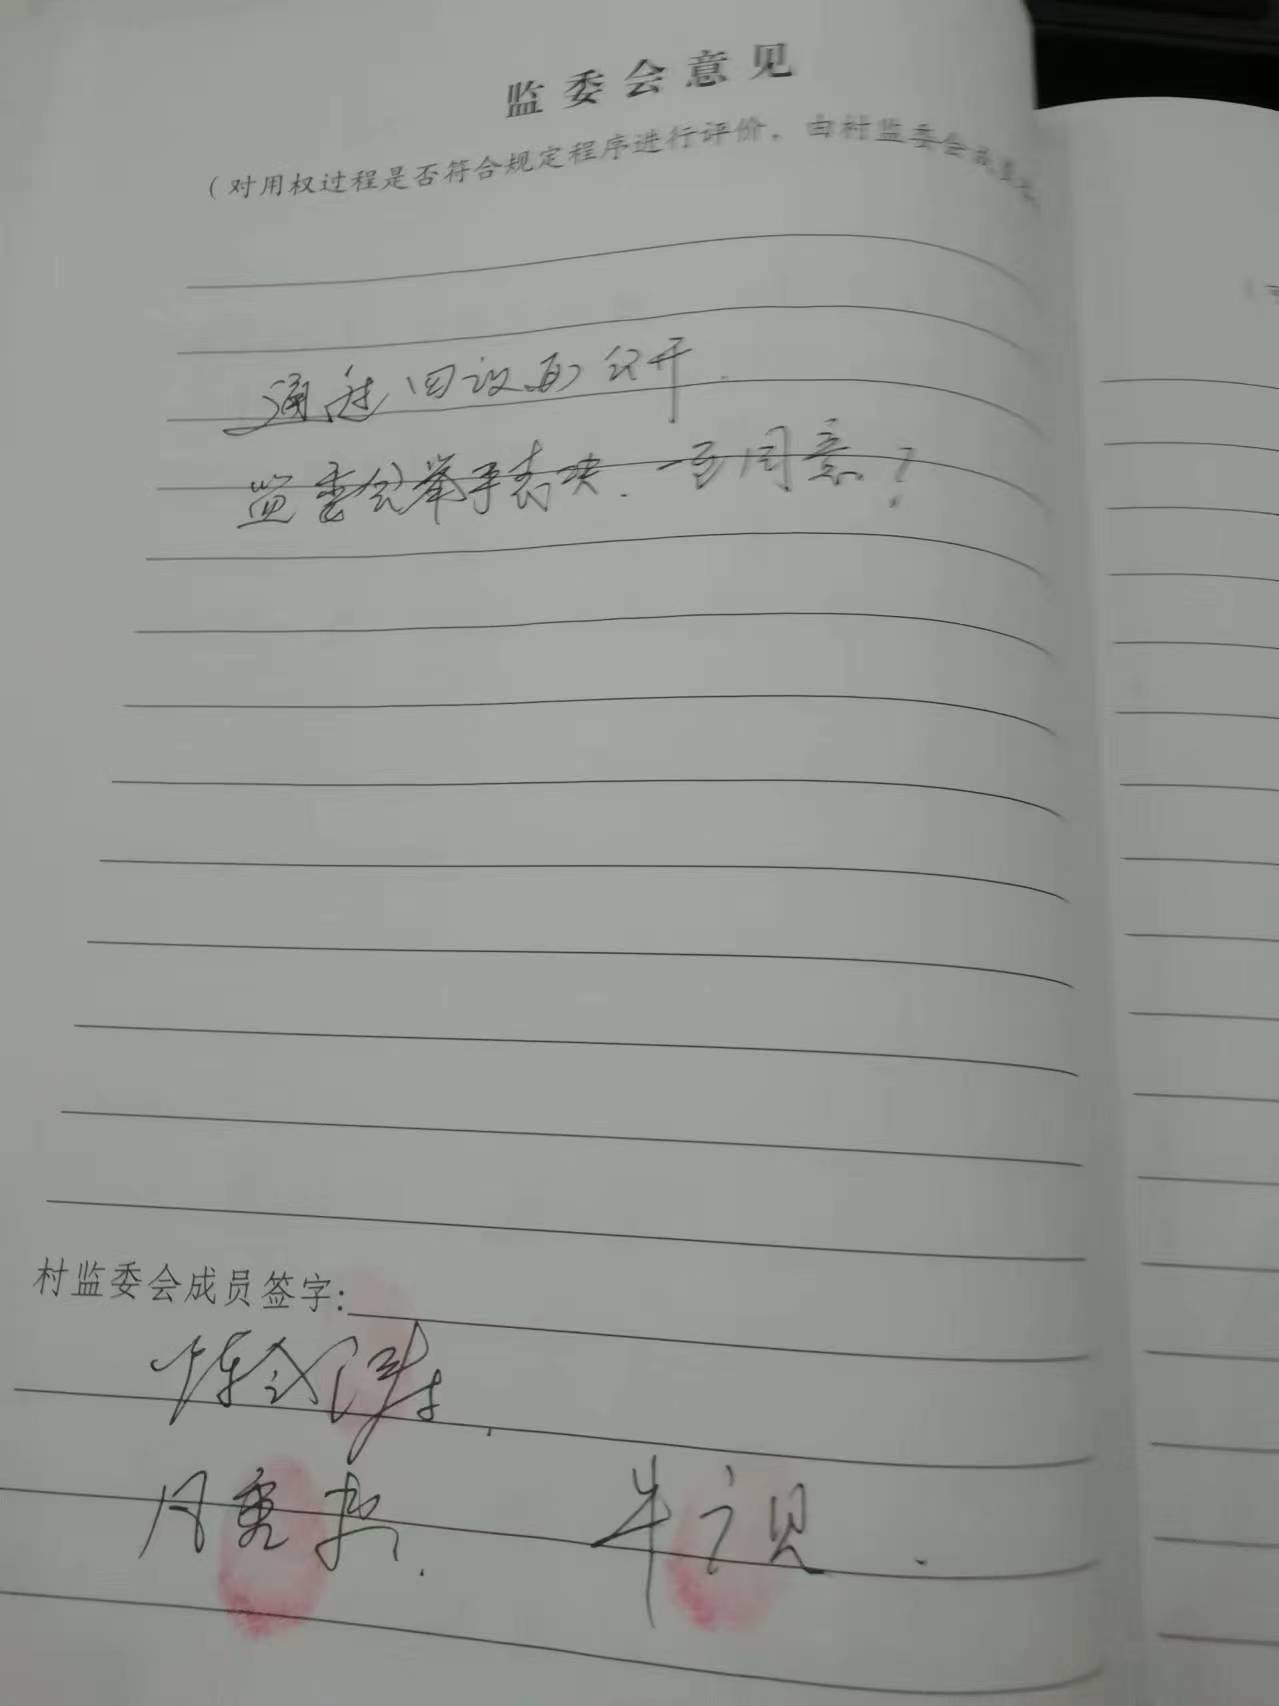 监委会意见
（对用权过程是否符合规定程序进行评价。由村监委会成员签
通过四议两公开.
监委会举手表决.一至同意！
村监委会成员签字:
牛之见.